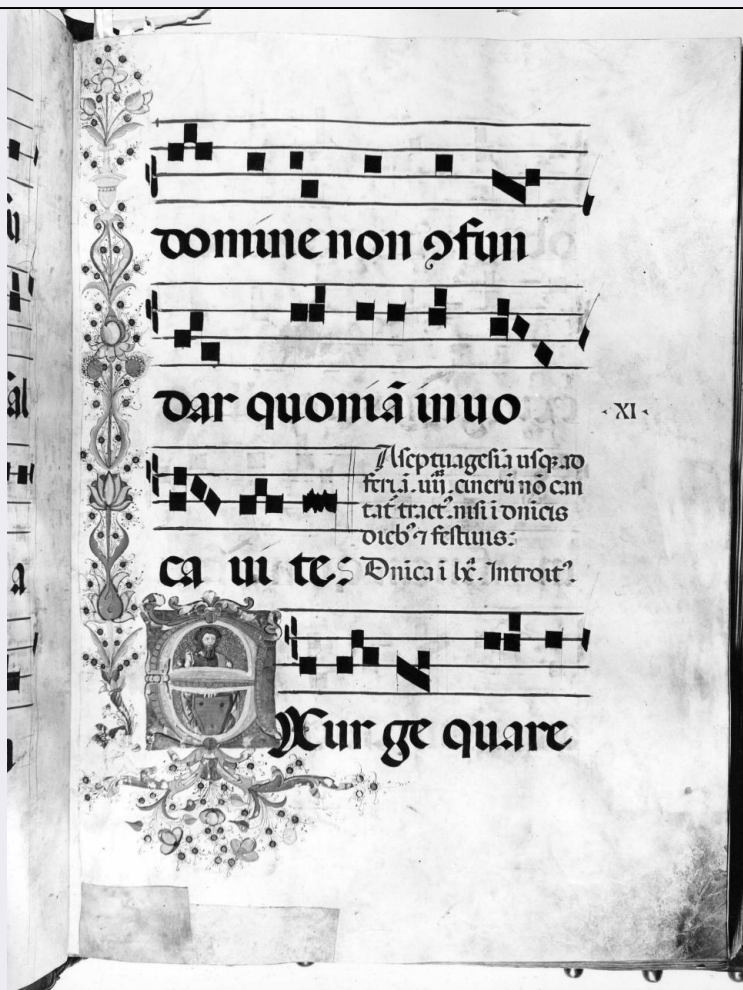 domine non ꝯfun
dar quoniã in uo
XI
ca ui te:
A septuagesĩa usqꝫ ad
feriã .iiij. cinerũ nõ can
tat᷑ tract᷒. nisi i dñicis
dieb᷒ ⁊ festiuis:
Dñica i lx̃. Introit᷒.
EXur ge quare